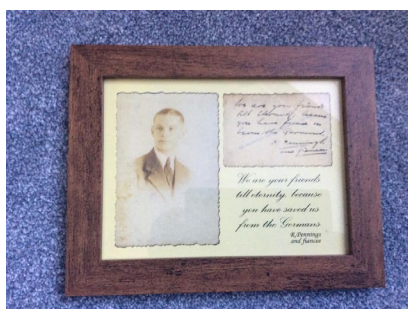 We are your friends
till eternity, because
you have saved us
from the Germans
We are your friends
till eternity, because
you have saved us
from the Germans
R. Dennings
and fiancee